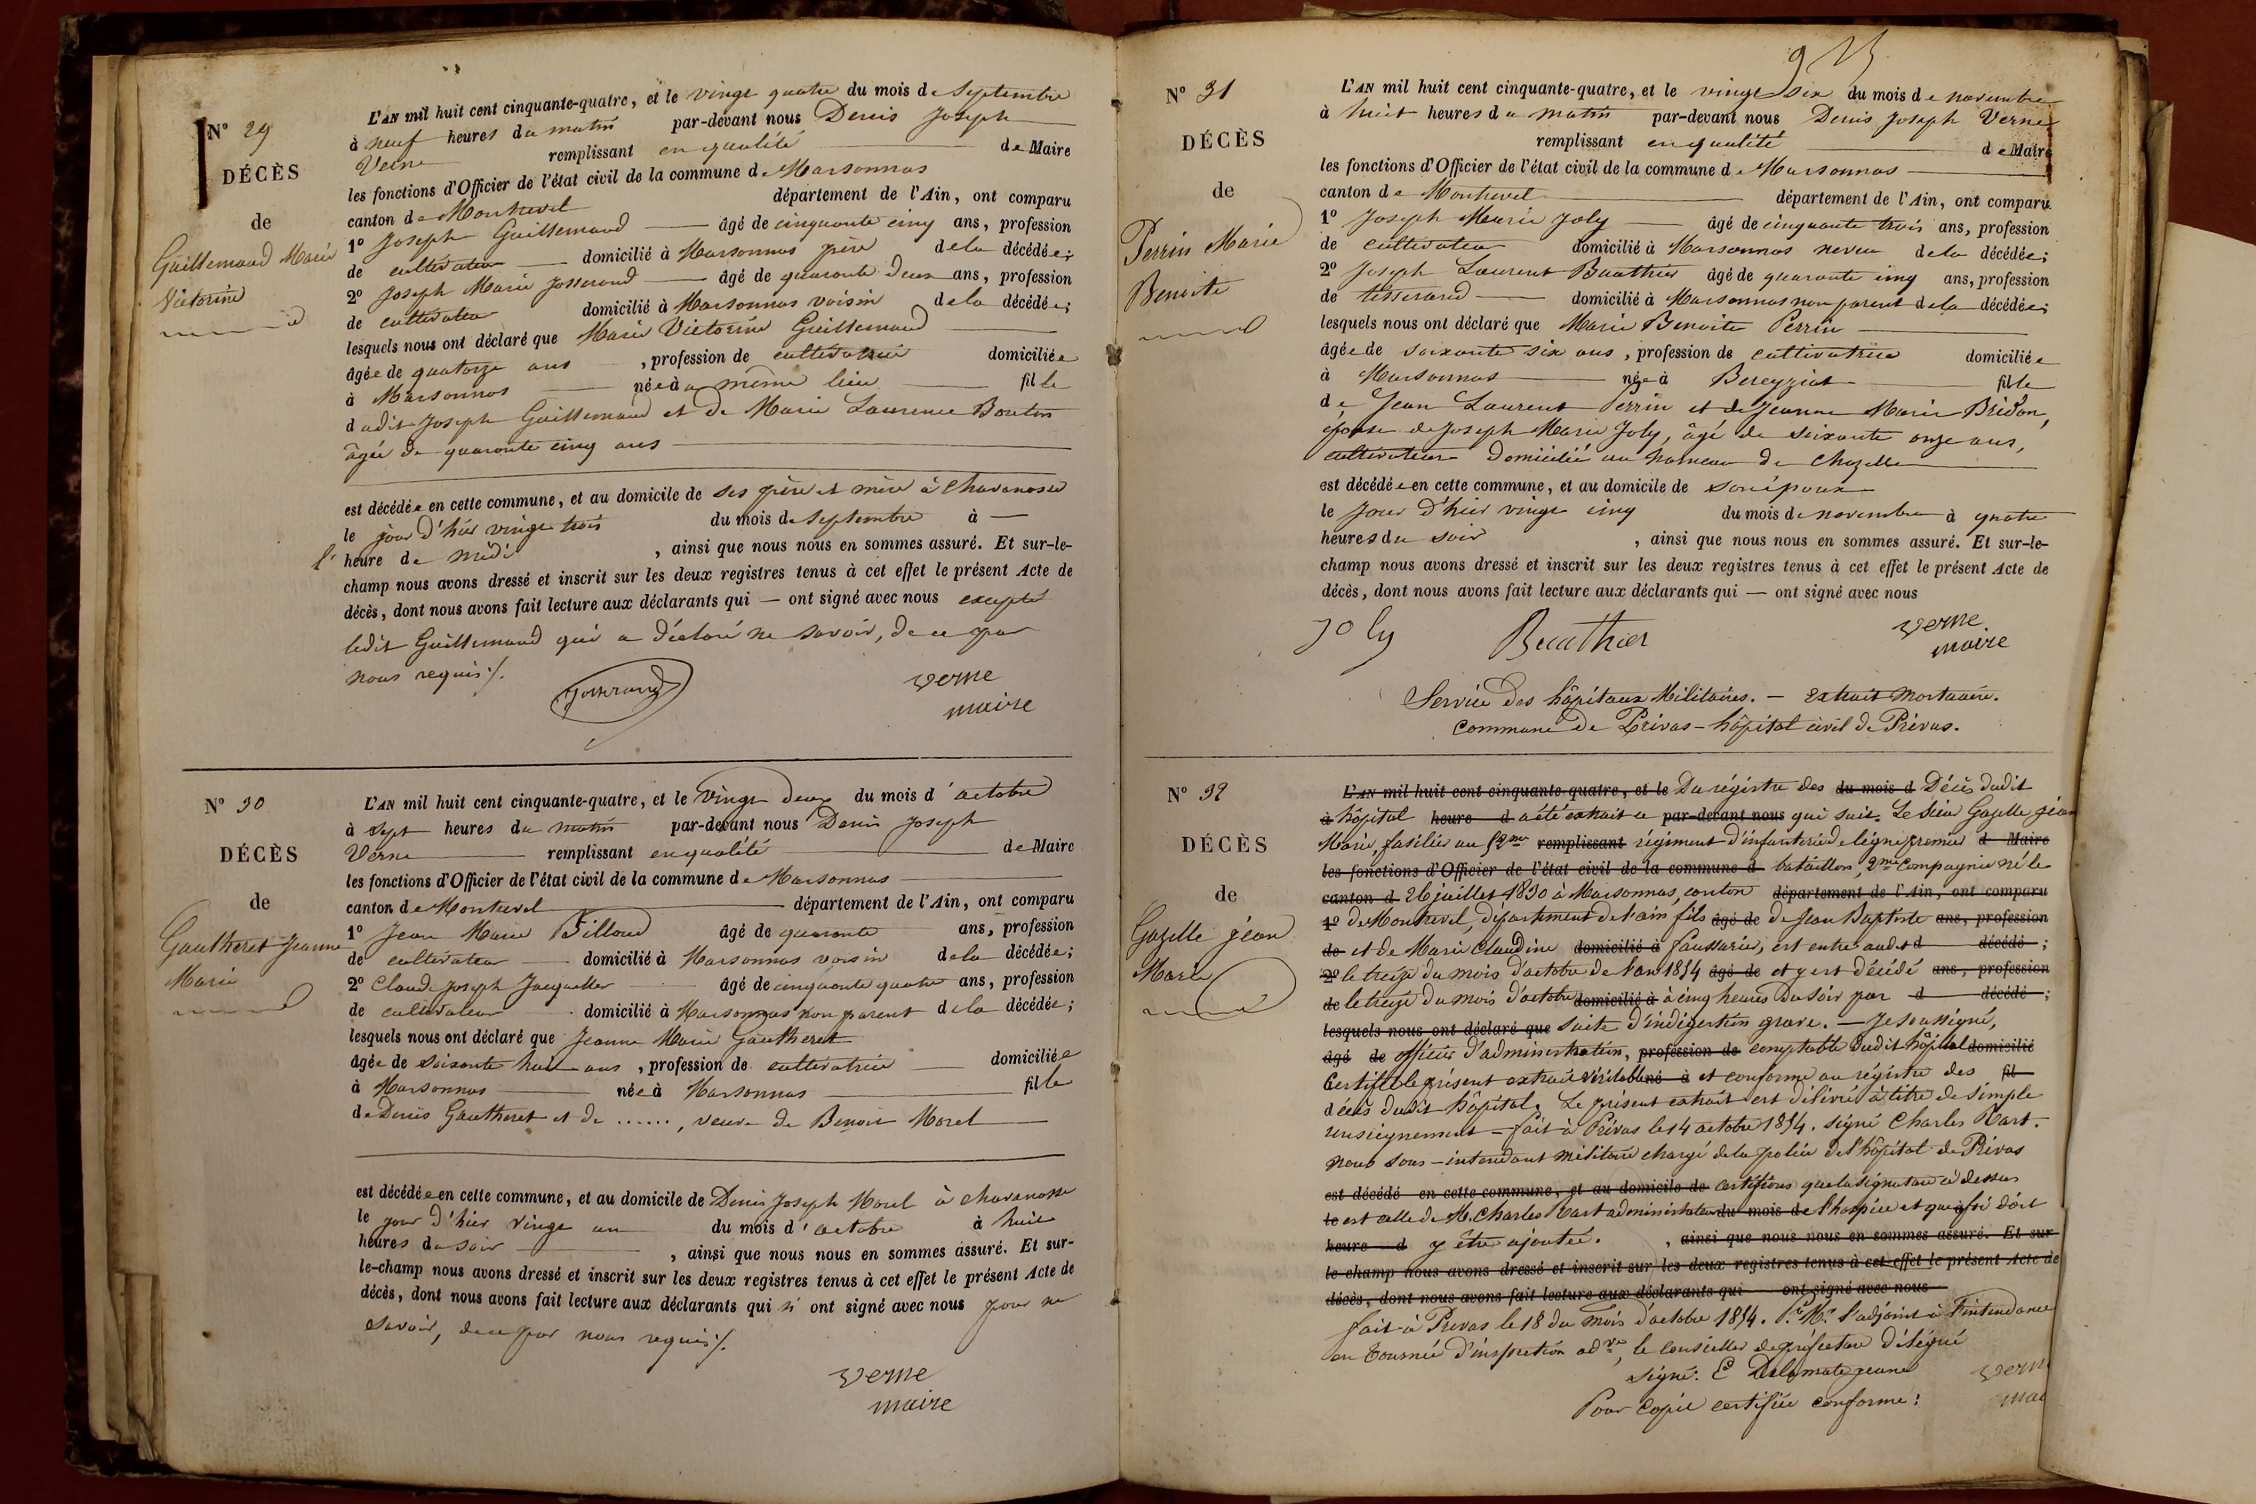 Nº 29
DÉCÈS
de
Guillemaud Marie
Victorine
L'AN mil huit cent cinquante-quatre, et le vingt quatre du mois de Septembre
à neuf heures du matin par-devant nous Denis Joseph
Verne remplissant en qualité de Maire
les fonctions d'Officier de l'état civil de la commune de Marsonnas
canton de Montrevel département de l'Ain, ont comparu
1º Joseph Guillemaud âgé de cinquante cinq ans, profession
de cultivateur domicilié à Marsonnas père de la décédée;
2º Joseph Marie Josserand âgé de quarante deux ans, profession
de cultivateur domicilié à Marsonnas voisin de la décédée;
lesquels nous ont déclaré que Marie Victorine Guillemaud
âgée de quatorze ans, profession de cultivatrice domiciliée
à Marsonnas née au même lieu fille
dudit Joseph Guillemaud et de Marie Laurence Bouton
âgée de quarante cinq ans
est décédée en cette commune, et au domicile de ses père et mère à Chavanosse
le jour d'hier vingt trois du mois de Septembre à —
l' heure de midi, ainsi que nous nous en sommes assuré. Et sur-le-
champ nous avons dressé et inscrit sur les deux registres tenus à cet effet le présent Acte de
décès, dont nous avons fait lecture aux déclarants qui — ont signé avec nous excepté
ledit Guillemaud qui a déclaré ne savoir, de ce par
nous requis ⁒.
Josserand
verne
maire
Nº 30
DÉCÈS
de
Gautheret Jeanne
Marie
L'AN mil huit cent cinquante-quatre, et le vingt deux du mois d'octobre
à sept heures du matin par-devant nous Denis Joseph
Verne remplissant en qualité de Maire
les fonctions d'Officier de l'état civil de la commune de Marsonnas
canton de Montrevel département de l'Ain, ont comparu
1º Jean Marie Filloud âgé de quarante ans, profession
de cultivateur domicilié à Marsonnas voisin de la décédée;
2º Claude Joseph Jacquellet âgé de cinquante quatre ans, profession
de cultivateur domicilié à Marsonnas non parent de la décédée;
lesquels nous ont déclaré que Jeanne Marie Gautheret
âgée de soixante huit ans, profession de cultivatrice domiciliée
à Marsonnas née à Marsonnas fille
de Denis Gautheret et de ......, veuve de Benoit Morel
est décédée en cette commune, et au domicile de Denis Joseph Morel à Chavanosse
le jour d'hier vingt un du mois d'octobre à huit
heures du soir, ainsi que nous nous en sommes assuré. Et sur-
le-champ nous avons dressé et inscrit sur les deux registres tenus à cet effet le présent Acte de
décès, dont nous avons fait lecture aux déclarants qui n'ont signé avec nous pour ne
savoir, de ce par nous requis ⁒.
verne
maire
Nº 31
DÉCÈS
de
Perrin Marie
Benoite
L'AN mil huit cent cinquante-quatre, et le vingt six du mois de novembre
à huit heures du matin par-devant nous Denis Joseph Verne
remplissant en qualité de Maire
les fonctions d'Officier de l'état civil de la commune de Marsonnas
canton de Montrevel département de l'Ain, ont comparu
1º Joseph Marie Joly âgé de cinquante trois ans, profession
de cultivateur domicilié à Marsonnas neveu de la décédée;
2º Joseph Laurent Buathier âgé de quarante cinq ans, profession
de tisserand domicilié à Marsonnas non parent de la décédée;
lesquels nous ont déclaré que Marie Benoite Perrin
âgée de soixante six ans, profession de cultivatrice domiciliée
à Marsonnas née à Bereyziat fille
de Jean Laurent Perrin et de Jeanne Marie Bridon,
épouse de Joseph Marie Joly, âgé de soixante onze ans,
cultivateur domicilié au hameau de Chazelle
est décédée en cette commune, et au domicile de son époux
le jour d'hier vingt cinq du mois de novembre à quatre
heures du soir, ainsi que nous nous en sommes assuré. Et sur-le-
champ nous avons dressé et inscrit sur les deux registres tenus à cet effet le présent Acte de
décès, dont nous avons fait lecture aux déclarants qui — ont signé avec nous
joly Buathier verne
maire
Service des hôpitaux Militaires. — Extrait mortuaire.
Commune de Privas – hôpital civil de Privas.
Nº 32
DÉCÈS
de
Gazelle jean
Marie
L'AN mil huit cent cinquante-quatre, et le Du régistre des du mois d Décès dudit
à hôpital heure d a été extrait ce par-devant nous qui suit. Le Sieur Gazelle jean
Marie, fusilier au 52me remplissant régiment d'infanterie de ligne premier d Maire
les fonctions d'Officier de l'état civil de la commune d bataillon, 2me Compagnie né le
canton d 26 juillet 1830 à Marsonnas, canton département de l'Ain, ont comparu
1º de Montrevel, département de l'ain fils âgé de de Jean Baptiste ans, profession
de et de Marie Claudine domicilié à Faussurier, est entré audit d décédé ;
2º le treize du mois d'octobre de l'an 1854 âgé de et y est décédé ans, profession
de le treize du mois d'octobre domicilié à à cinq heures du soir par d décédé ;
lesquels nous ont déclaré que suite d'indigestion grave. — Je soussigné,
âgé de officier d'administration, profession de comptable dudit hôpital domicilié
Certifie le présent extrait véritable né à et conforme au régistre des fil
décès dudit hôpital. Le présent extrait est délivré à titre de simple
renseignement = fait à Privas le 14 octobre 1854. signé Charles Rast.
nous sous-intendant militaire chargé de la police de l'hôpital de Privas
est décédé en cette commune, et au domicile de certifions que la signature ci dessus
le est celle de M. Charles Rast administrateur du mois de l'hospice et que foi doit
heure d y être ajoutée. , ainsi que nous nous en sommes assuré. Et sur
le champ nous avons dressé et inscrit sur les deux registres tenus à cet effet le présent Acte de
décès, dont nous avons fait lecture aux déclarants qui ont signé avec nous
fait à Privas le 18 du mois d'octobre 1854. Pr Mr l'adjoint à l'intendance
en tournée d'inspection adve, le conseiller de préfecture délégué
signé: E Delamate jeune
Pour Copie certifiée conforme: